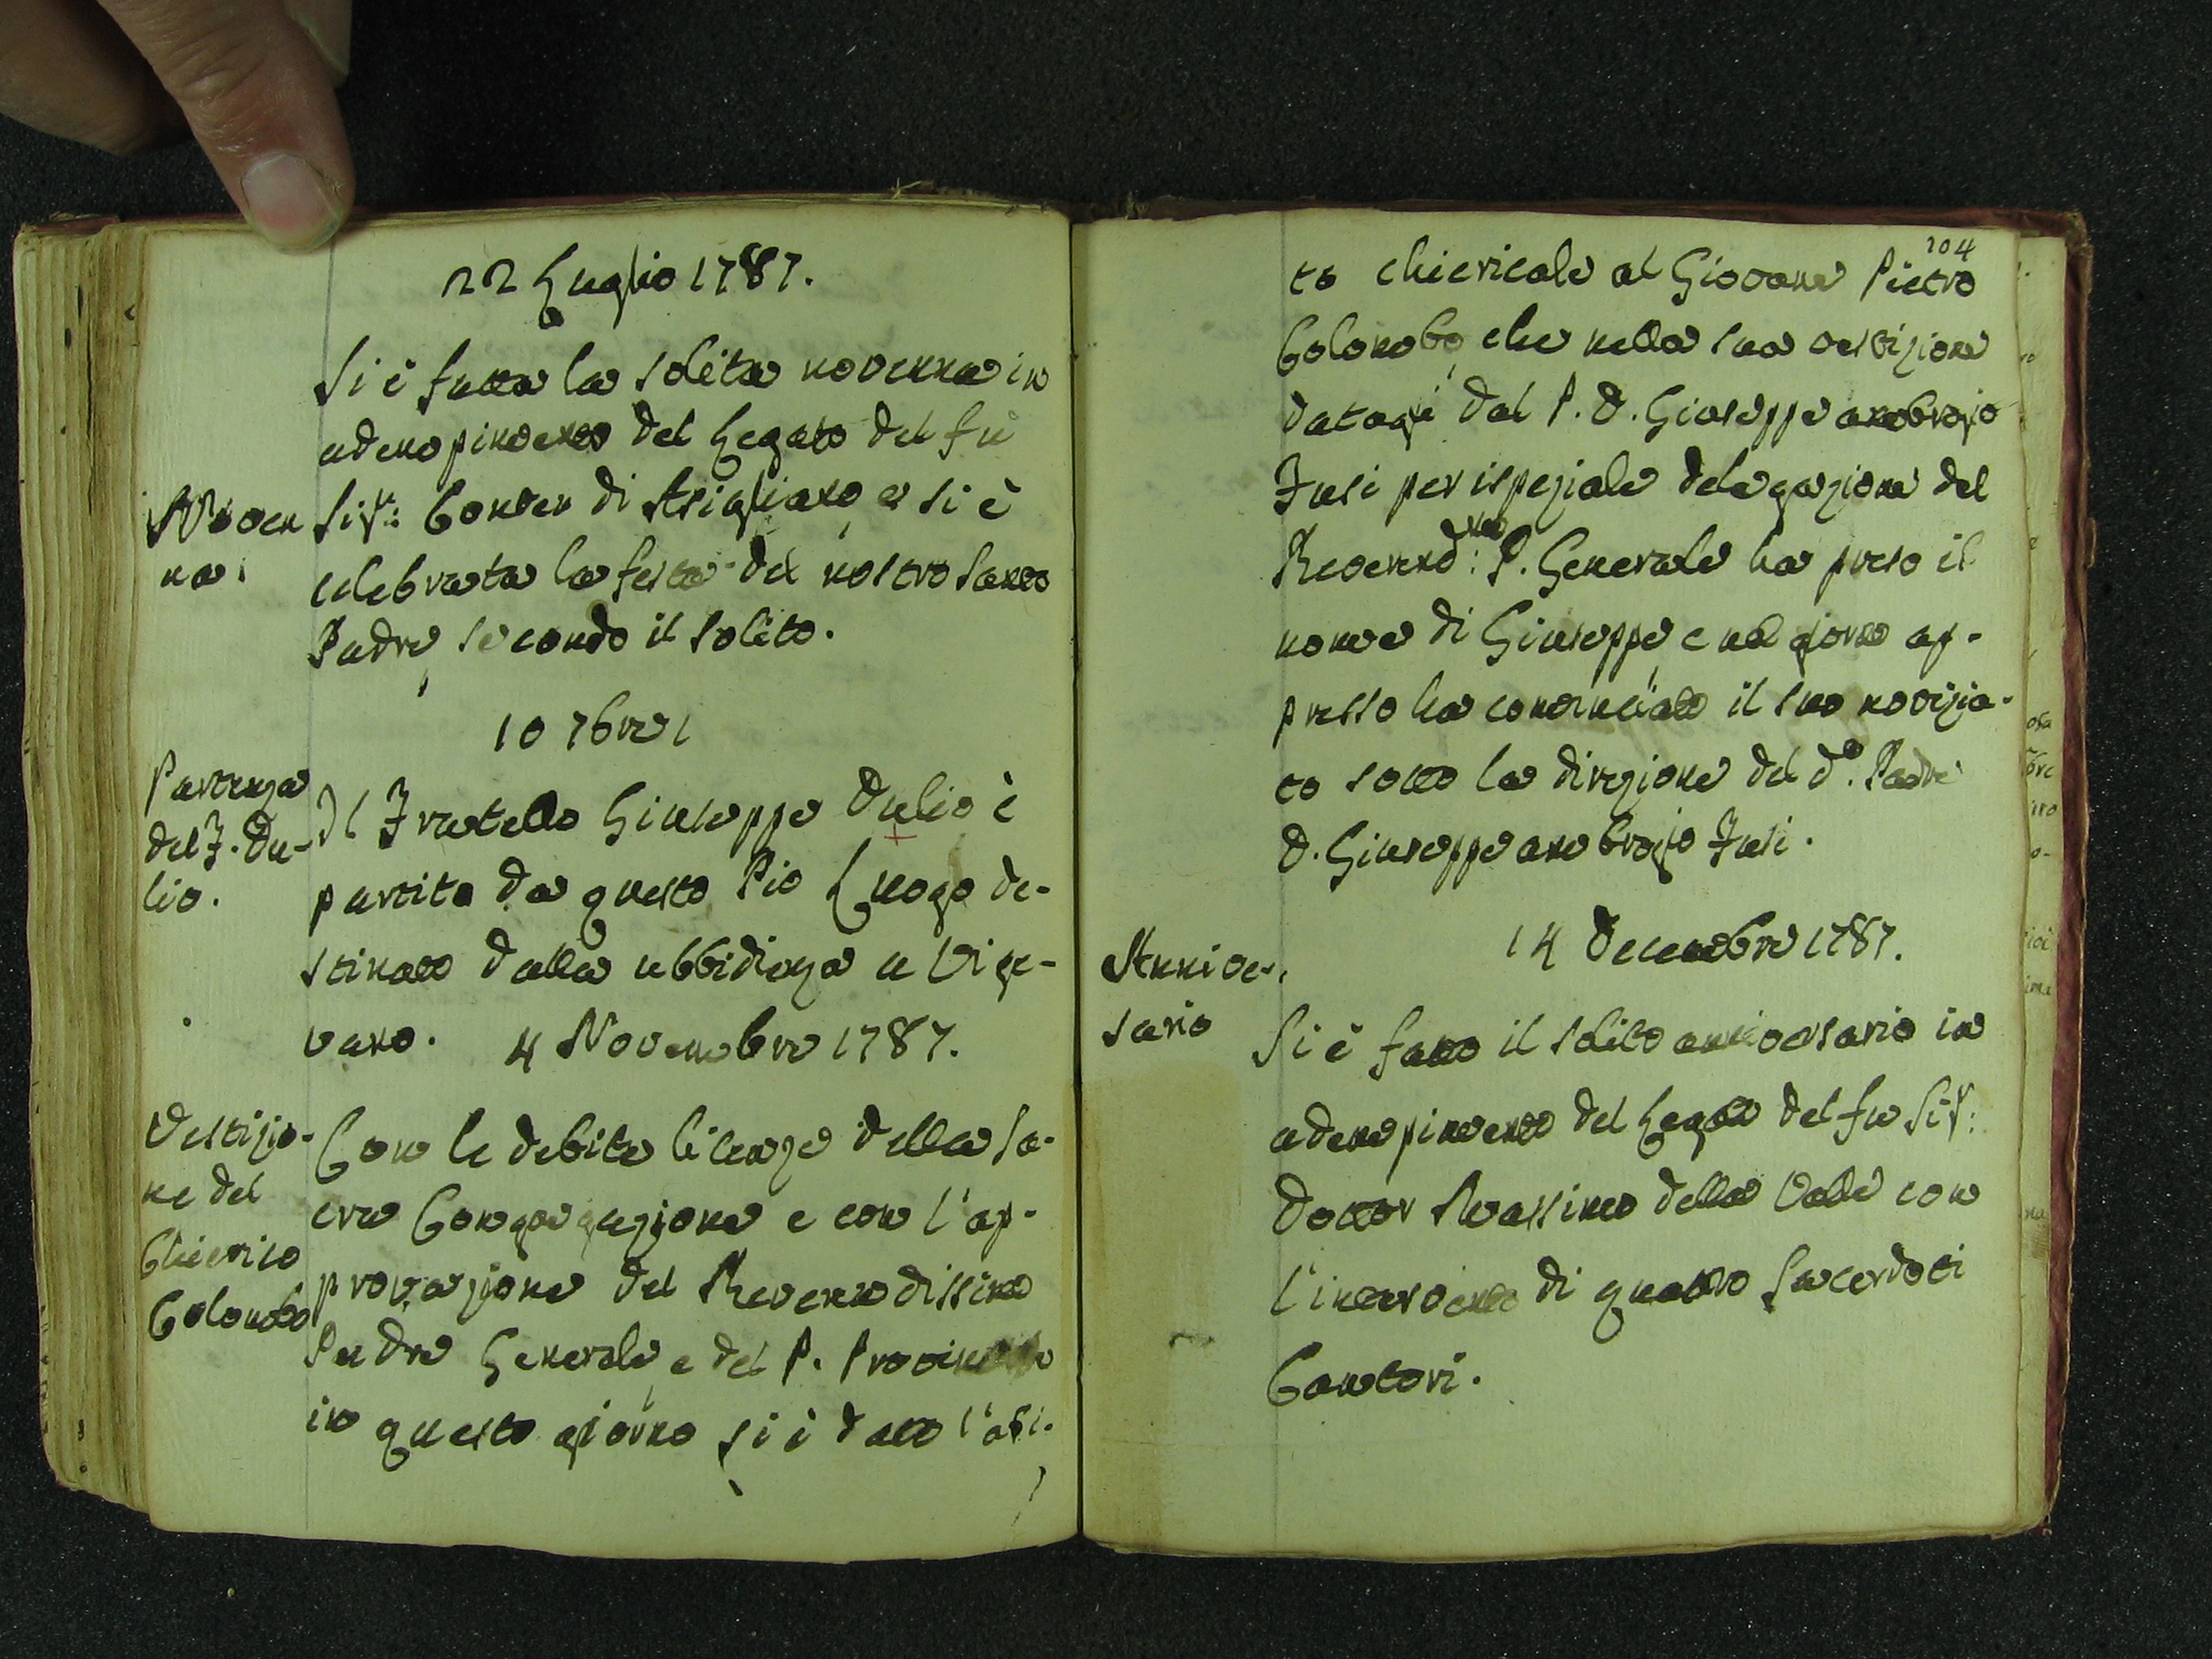 22 Luglio 1787.
Si è fatta la solita novenna in
adempimento del Legato del fù
Noven
na.
Sig.r: Conter di Asigliano e si è
celebrata la festa del nostro Santo
Padre secondo il solito.
10 7bre
Partenza
del F. Du-
lio.
Il Fratello Giuseppe Dulio è
partito da questo Pio Luogo de-
stinato dalla ubbidienza a Vige-
vano. 4 Novembre 1787.
Vestizio-
ne del
Chierico
Colombo
Con le debite licenze della Sa-
cra Congregazione e con l'ap-
provazione del Reverendissimo
Padre Generale e del P. Provinciale
in questo giorno si è dato l'abi-
104
to chiericale al Giovane Pietro
Colombo che nella sua vestizione
datagli dal P. D. Giuseppe ambrogio
Fusi per ispeziale delegazione del
Reverend.mo: P. Generale ha preso il
nome di Giuseppe e nel giorno ap-
presso ha cominciato il suo novizia-
to sotto la direzione del d.o Padre
D. Giuseppe ambrogio Fusi.
14 Decembre 1787.
Anniver-
sario
Si è fatto il solito anniversario in
adempimento del Legato del fu Sig.:
Dottor Massimo della Valle con
l'intervento di quattro Sacerdoti
Cantori.